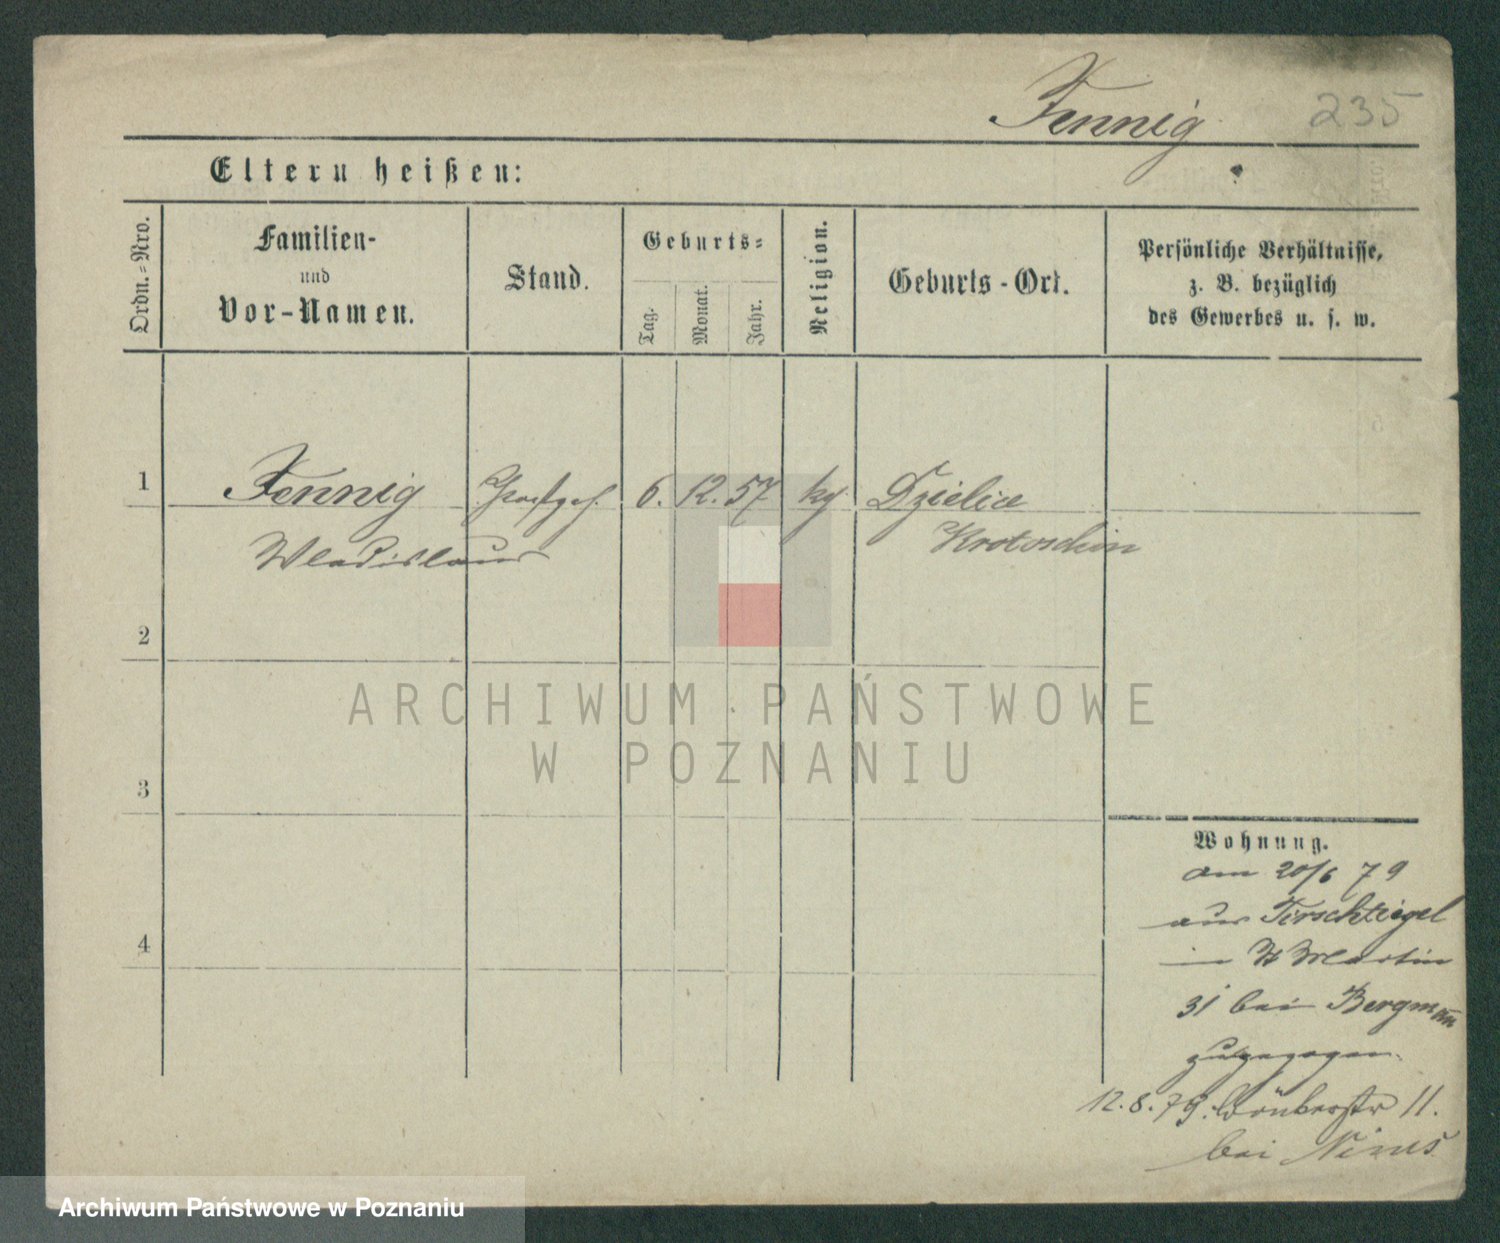 Fennig
235
Eltern heißen:
Ordn.-Nro.
Familien-
und
Vor-Namen.
Stand.
Geburts-
Tag.
Monat.
Jahr.
Religion.
Geburts-Ort.
Persönliche Verhältnisse,
z. B. bezüglich
des Gewerbes u. s. w.
1
Fennig
6. 12. 57
Dzielice
Wladislaus
Krotoschin
2
ARCHIWUM PAŃSTWOWE
W POZNANIU
3
Wohnung.
am 20/6 79
aus Tirschtiegel
in St Martin
4
31 bei Bergmann
zugezogen
12.8.79. 11.
bei
Archiwum Państwowe w Poznaniu